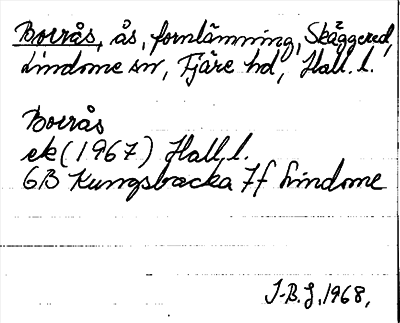 Borrås, ås, fornlämning, Skäggered,
Lindome sn, Fjäre hd, Hall. l.
Borrås
ek (1967) Hall. l.
6B Kungsbacka 7f Lindome
J-B. J. 1968,